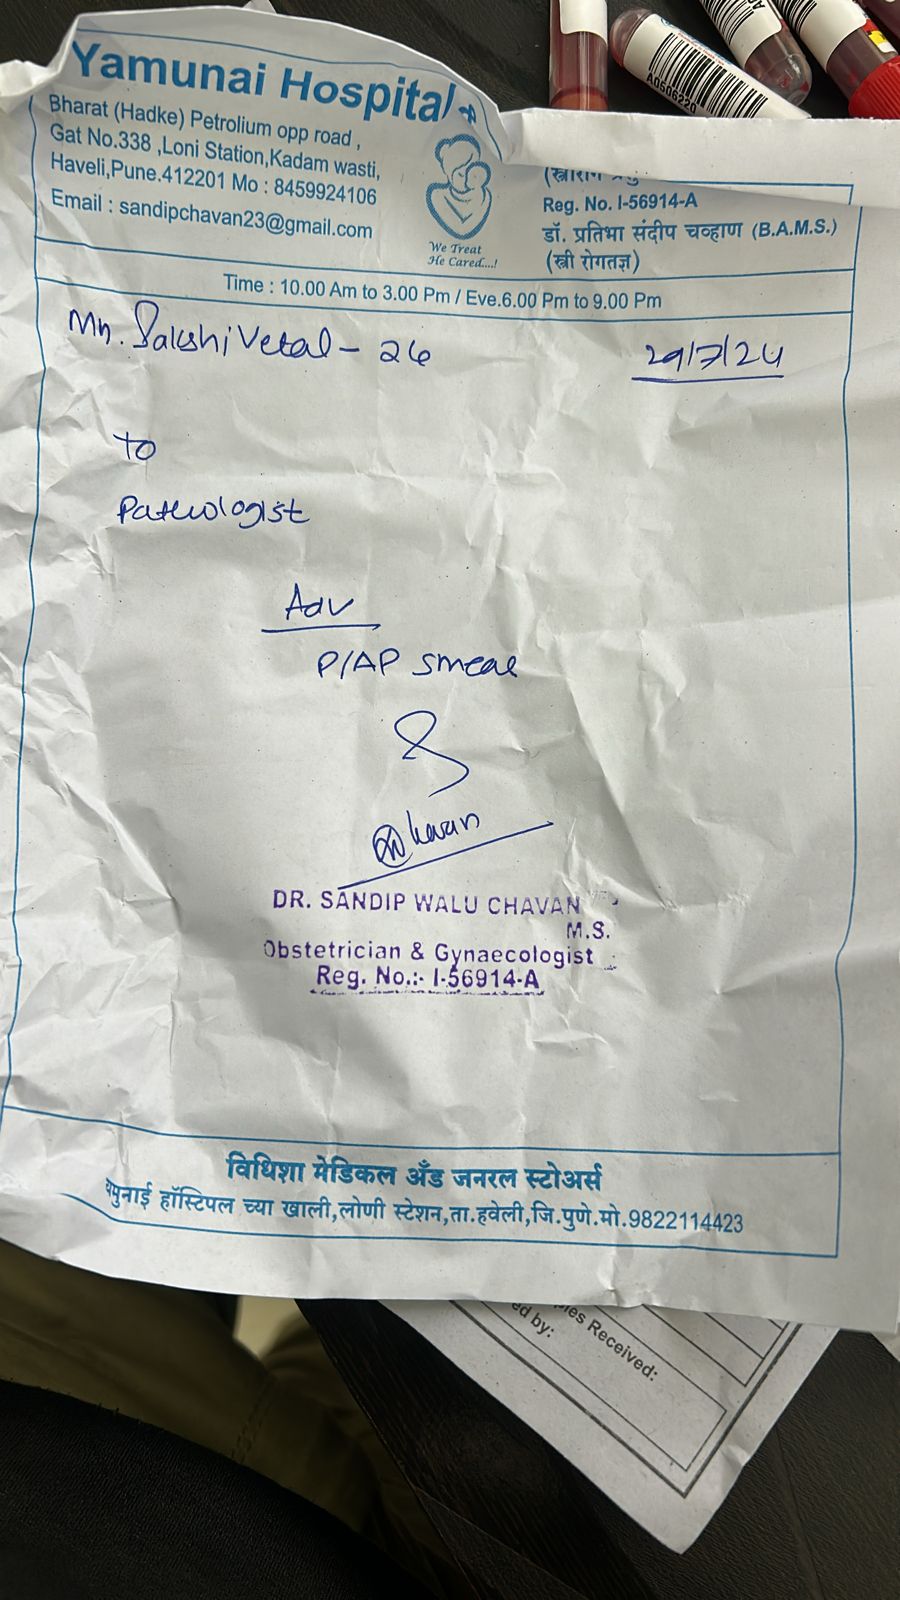 Yamunai Hospital
Bharat (Hadke) Petrolium opp road ,
Gat No.338 ,Loni Station,Kadam wasti,
Haveli,Pune.412201 Mo : 8459924106
Email : sandipchavan23@gmail.com
We Treat
He Cared....!
Reg. No. I-56914-A
डॉ. प्रतिभा संदीप चव्हाण (B.A.M.S.)
(स्त्री रोगतज्ञ)
Time : 10.00 Am to 3.00 Pm / Eve.6.00 Pm to 9.00 Pm
Mn. Sakshi Vetal - 26
29/7/24
to
Pathologist
Adv
P/AP smear
DR. SANDIP WALU CHAVAN
M.S.
Obstetrician & Gynaecologist
Reg. No.:- I-56914-A
विधिशा मेडिकल अँड जनरल स्टोअर्स
यमुनाई हॉस्टिपल च्या खाली,लोणी स्टेशन,ता.हवेली,जि.पुणे.मो.9822114423
Received:
ed by:
A0506220